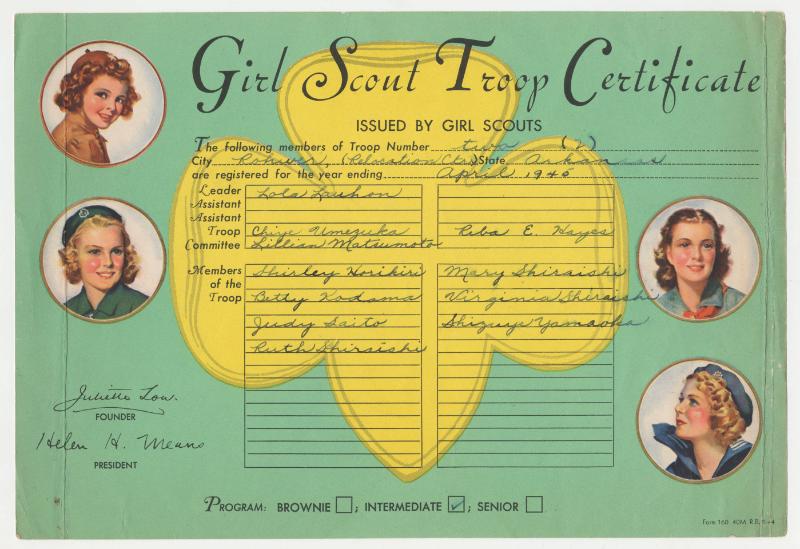 Girl Scout Troop Certificate
ISSUED BY GIRL SCOUTS
The following members of Troop Number two (2)
City Rohwer, (Relocation Ctr) State Arkansas
are registered for the year ending April 1945
Leader Lola Lauhon
Assistant
Assistant
Troop Chiye Umezuka Reba E. Hayes
Committee Lillian Matsumoto
Members Shirley Horikiri Mary Shiraishi
of the
Troop Betty Kodama Virginia Shiraishi
Judy Saito Shizuye Yamaoka
Ruth Shiraishi
Juliette Low.
FOUNDER
Helen H. Means
PRESIDENT
PROGRAM: BROWNIE ; INTERMEDIATE ✓; SENIOR
Form 160 40M R.B.